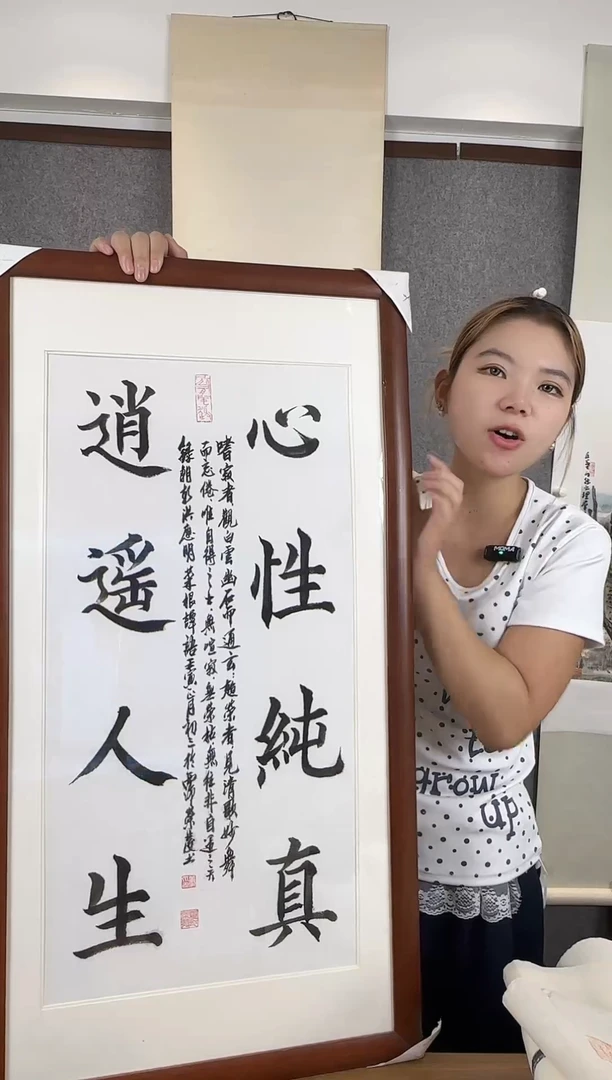 心性純真
嗜寂者觀白雲幽石而通玄趨榮者見清歌妙舞
而忘倦唯自得之士無喧寂無榮枯無往非自適之天
錄明朝洪應明菜根譚語壬寅月初三於
逍遥人生
MOMA
grow
up